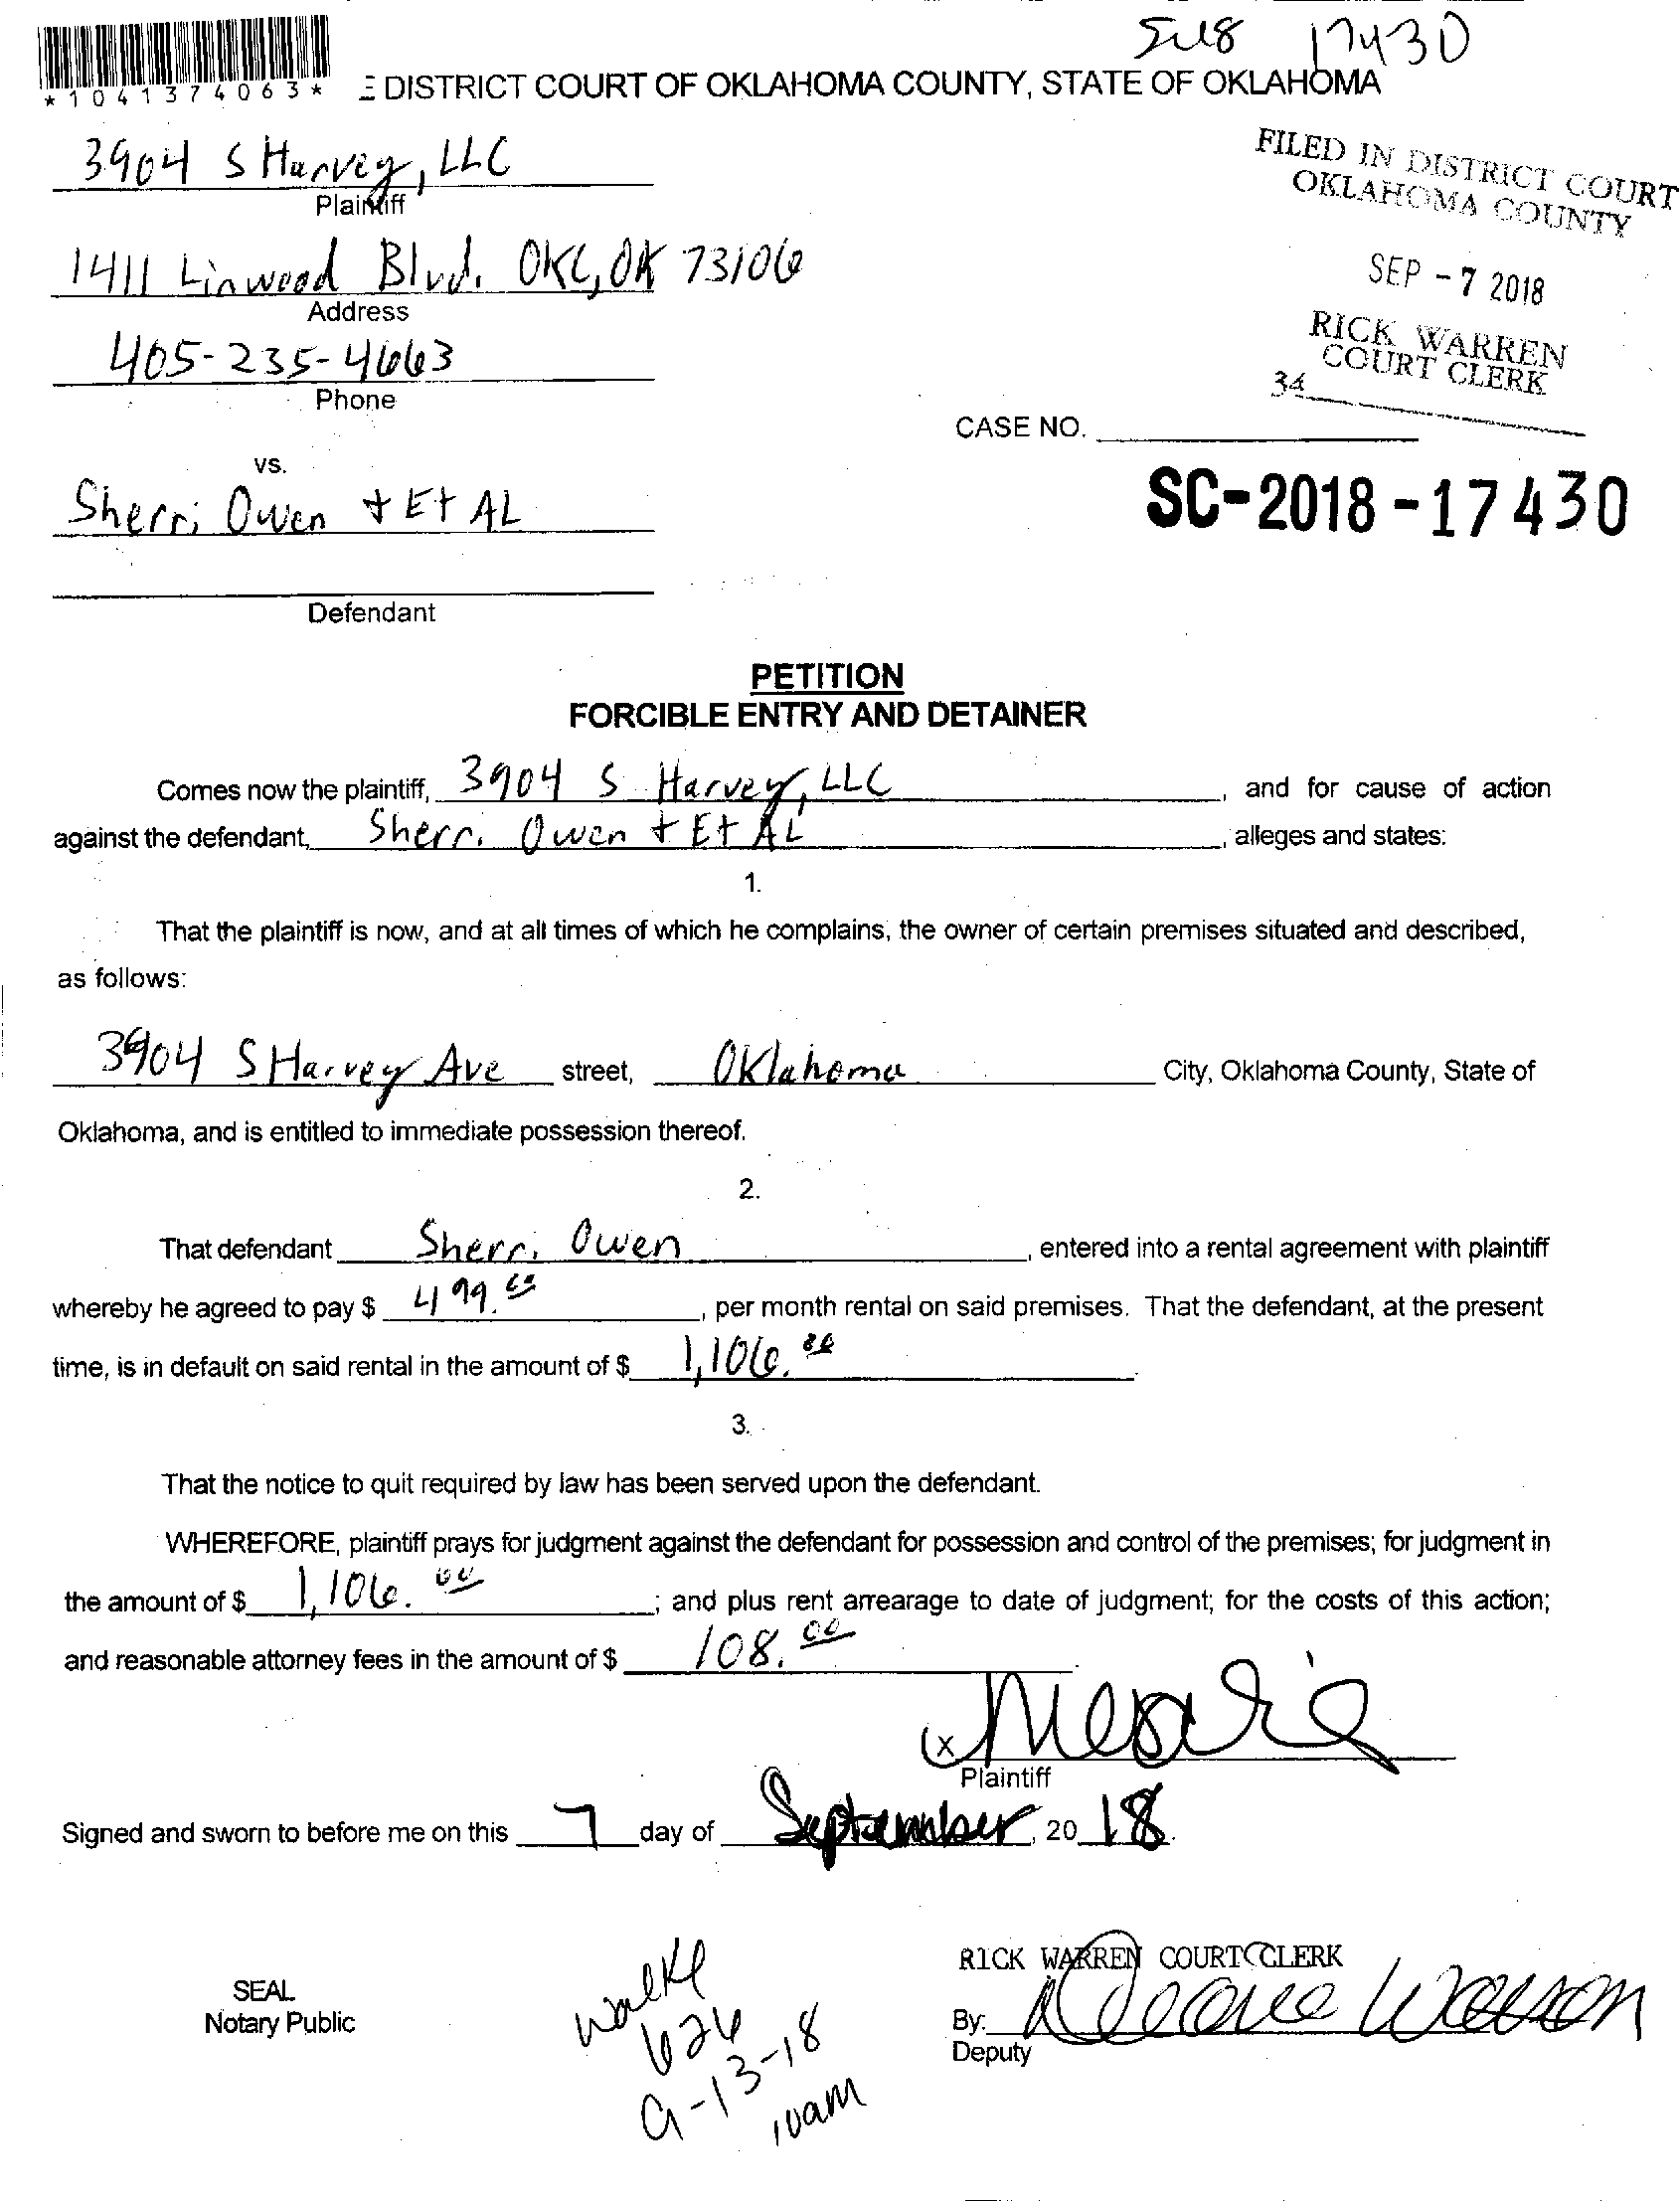 17430
*1041374063*
E DISTRICT COURT OF OKLAHOMA COUNTY, STATE OF OKLAHOMA
3904 S Harvey, LLC
Plaintiff
FILED IN DISTRICT COURT
OKLAHOMA COUNTY
1411 Linwood Blvd. OKC, OK 73106
Address
SEP - 7 2018
405-235-4663
Phone
RICK WARREN
COURT CLERK
34
CASE NO.
vs.
Sherri Owen + Et AL
SC-2018-17430
Defendant
PETITION
FORCIBLE ENTRY AND DETAINER
Comes now the plaintiff, 3904 S Harvey, LLC, and for cause of action
against the defendant, Sherri Owen + Et AL, alleges and states:
1.
That the plaintiff is now, and at all times of which he complains, the owner of certain premises situated and described,
as follows:
3904 S Harvey Ave street, Oklahoma City, Oklahoma County, State of
Oklahoma, and is entitled to immediate possession thereof.
2.
That defendant Sherri Owen, entered into a rental agreement with plaintiff
whereby he agreed to pay $ 499.00, per month rental on said premises. That the defendant, at the present
time, is in default on said rental in the amount of $ 1,106.00.
3.
That the notice to quit required by law has been served upon the defendant.
WHEREFORE, plaintiff prays for judgment against the defendant for possession and control of the premises; for judgment in
the amount of $ 1,106.00; and plus rent arrearage to date of judgment; for the costs of this action;
and reasonable attorney fees in the amount of $ 108.00.
x
Plaintiff
Signed and sworn to before me on this 7 day of September, 2018.
RICK WARREN COURT CLERK
SEAL
Notary Public
By:
Deputy
626
9-13-18
10am